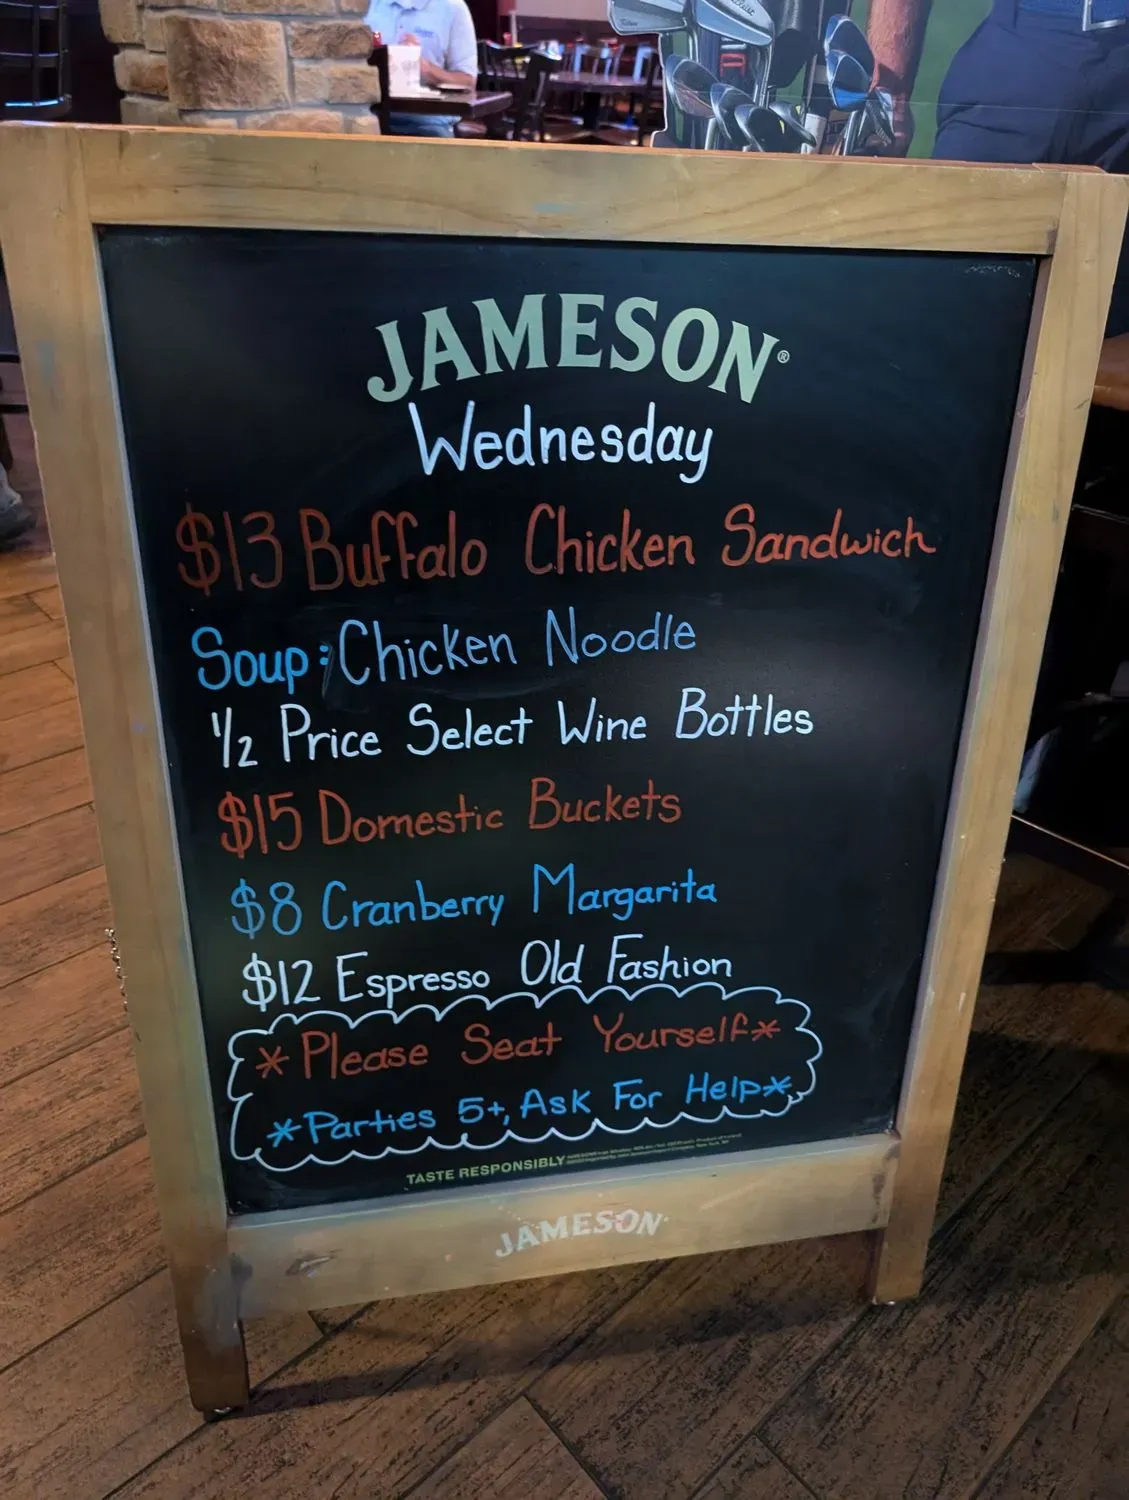 JAMESON®
Wednesday
$13 Buffalo Chicken Sandwich
Soup: Chicken Noodle
1/2 Price Select Wine Bottles
$15 Domestic Buckets
$8 Cranberry Margarita
$12 Espresso Old Fashion
*Please Seat Yourself*
*Parties 5+, Ask For Help*
TASTE RESPONSIBLY
JAMESON